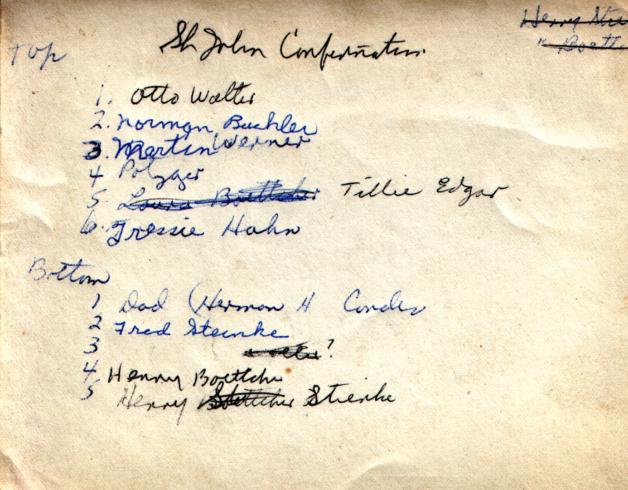 Henry
" Boett
Top St John Confirmation
1. Otto Walter
2. Norman Buehler
3. Martin Werner
4 Polzger
5. Laura Boettcher Tillie Edgar
6. Tressie Hahn
Bottom
1 Dad (Herman H Condes
2 Fred Steinke
3 ?
4 Henry Boettche
5 Henry Boettcher Stienke